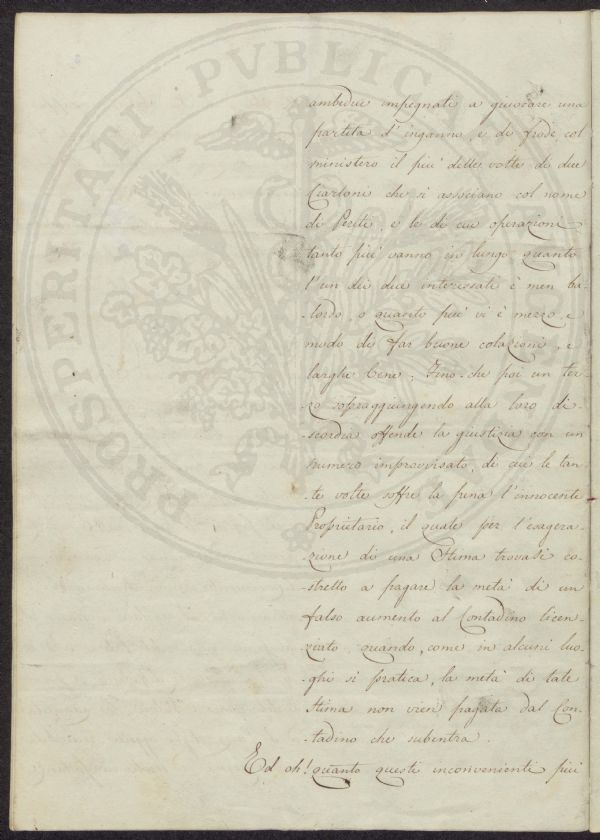 ambedue impegnati a giuocare una
partita d'inganno, e di frode col
ministero il più delle volte di due
Ciarloni che si associano col nome
di Periti, e le di cui operazioni
tanto più vanno in lungo quanto
l'un dei due interessati è men ba-
-lordo, o quanto più vi è mezzo, e
modo di far buone colazioni, e
larghe Cene; Fino che poi un ter-
-zo sopraggiungendo alla loro di-
-scordia offende la giustizia con un
numero improvisato, di cui le tan-
-te volte soffre la pena l'innocente
Proprietario, il quale per l'esagera-
-zione di una Stima trovasi co-
-stretto a pagare la metà di un
falso aumento al Contadino licen-
-ziato, quando, come in alcuni luo-
-ghi si pratica, la metà di tale
Stima non vien pagata dal Con-
-tadino che subentra.
Ed oh! quanto questi inconvenienti più
PROSPERITATI PVBLICAE